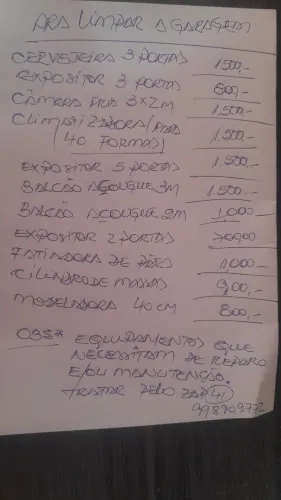 PRA LIMPAR A GARAGEM
CERVEJEIRA 3 PORTAS 1500,-
EXPOSITOR 3 PORTAS 800,-
CÂMARA FRIA 3X2M 1.500,-
CLIMATIZADORA (PARA
40 FORMAS) 1.500,-
EXPOSITOR 5 PORTAS 1.500,-
BALCÃO AÇOUGUE 3M 1.500,-
BALCÃO AÇOUGUE 2M 1,000-
EXPOSITOR 2 PORTAS 70000
FATIADORA DE PÃES 1,000-
CILINDRO DE MASSAS 900,-
MODELADORA 40CM 800,-
OBS* EQUIPAMENTOS QUE
NECESSITAM DE REPARO
E/OU MANUTENÇÃO.
TRATAR PELO ZAP 41